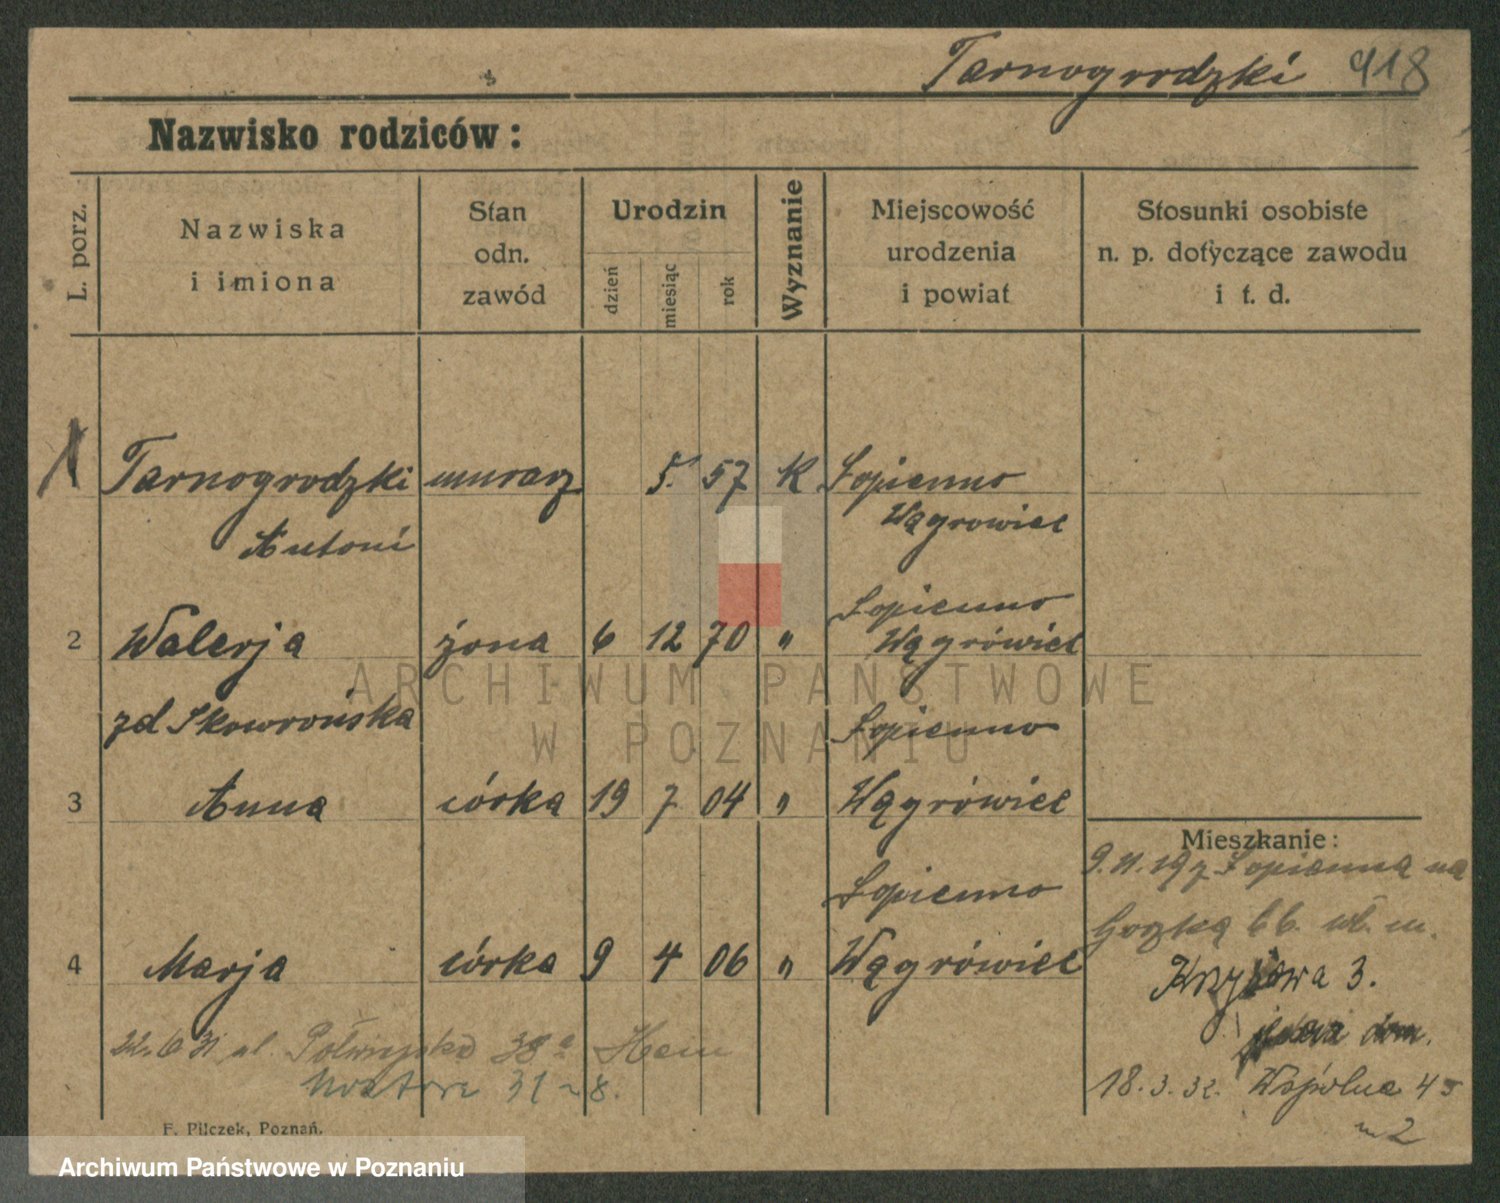 Tarnogrodzki 918
Nazwisko rodziców:
L. porz.
Nazwiska
i imiona
Stan
odn.
zawód
Urodzin
dzień
miesiąc
rok
Wyznanie
Miejscowość
urodzenia
i powiat
Stosunki osobiste
n. p. dotyczące zawodu
i t. d.
1 Tarnogrodzki murarz 5. 57 K Łopienno
Antoni Wągrowiec
Łopienno
2 Walerja żona 6 12 70 " Wągrówiec
zd Skowrońska Łopienno
3 Anna córka 19 7 04 " Wągrówiec
Mieszkanie:
9. 11. 19 z Łopienna na
Łopienno
4 Marja córka 9 4 06 " Wągrówiec
Krzyżowa 3.
dom.
22. 6 31 ul. Półwiejska 38a
31 - 8.
18. 3. 32. Wspólna 45
m 2
F. Pilczek, Poznań.
ARCHIWUM PAŃSTWOWE
W POZNANIU
Archiwum Państwowe w Poznaniu